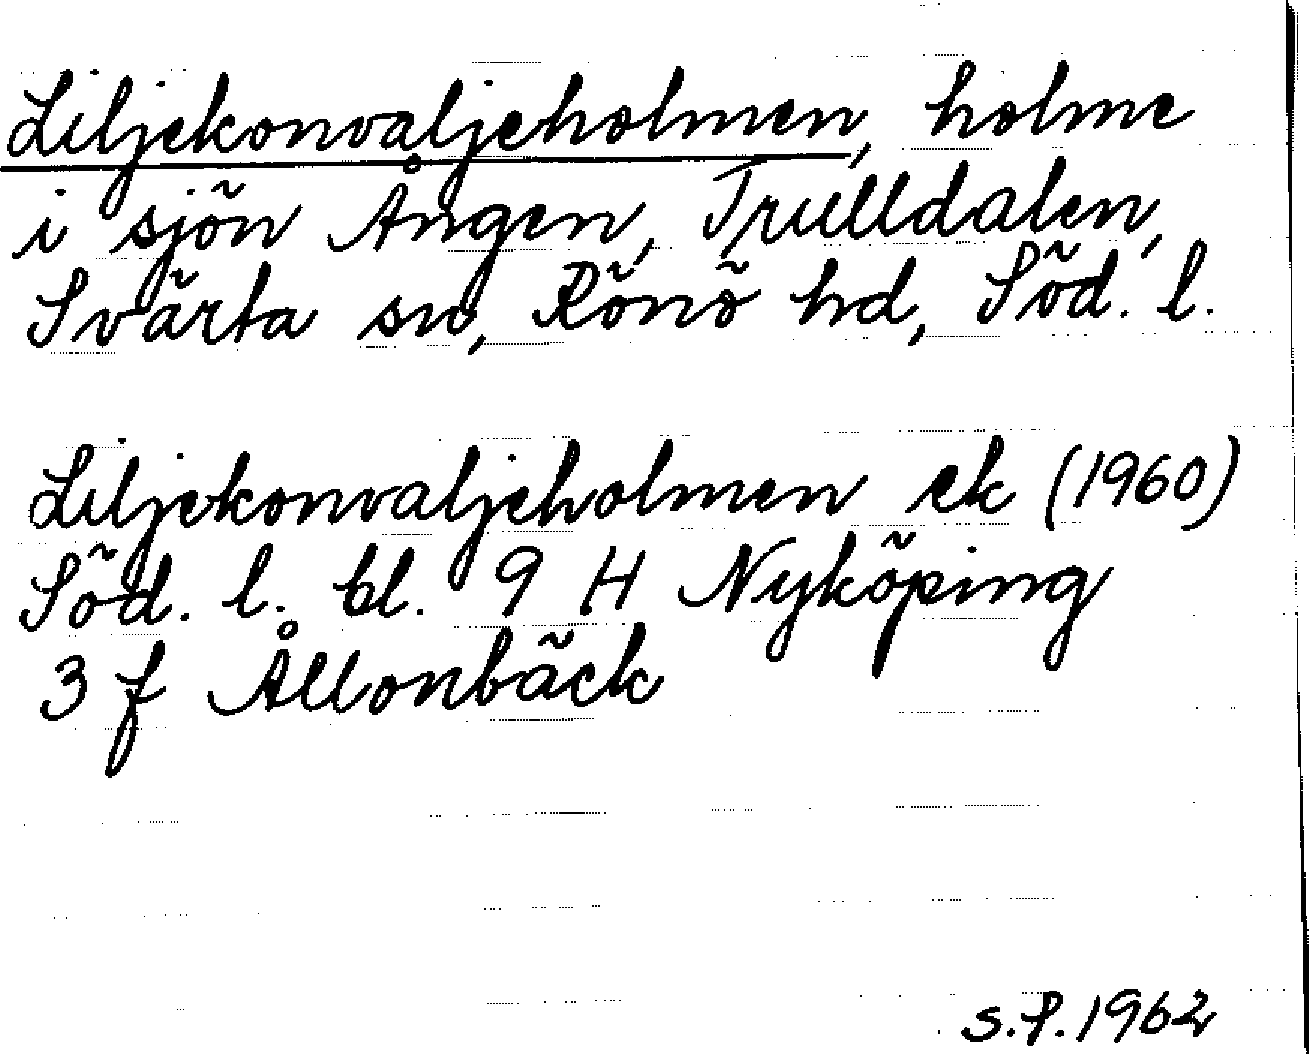 Liljekonvaljeholmen, holme
i sjön Ången, Trulldalen,
Svärta sn, Rönö hd, Söd. l.
Liljekonvaljeholmen ek (1960)
Söd. l. bl. 9 H Nyköping
3 f Ållonbäck
S.P. 1962